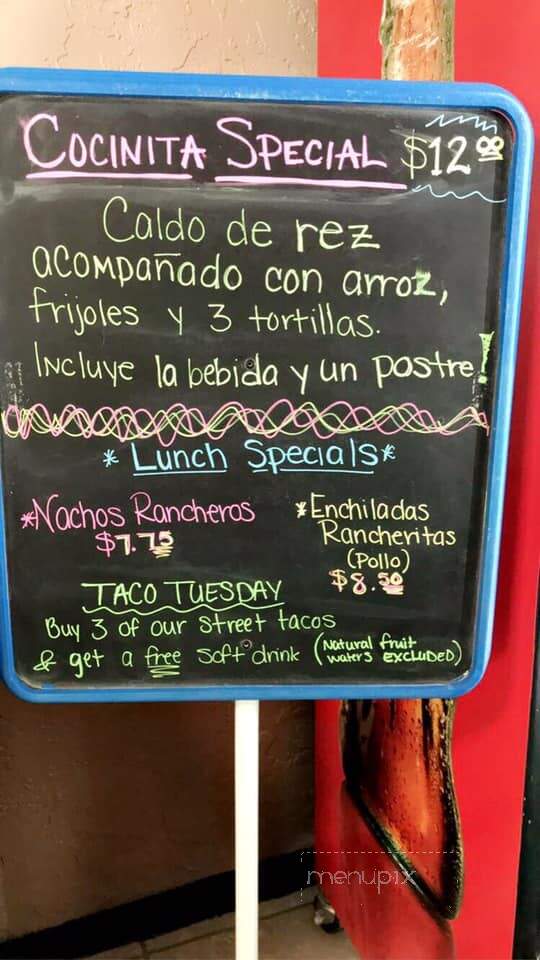 COCINITA SPECIAL $12.00
Caldo de rez
acompañado con arroz,
frijoles y 3 tortillas.
Incluye la bebida y un postre!
* Lunch Specials *
*Nachos Rancheros
$7.75
*Enchiladas
Rancheritas
(Pollo)
$8.50
TACO TUESDAY
Buy 3 of our street tacos
& get a free soft drink (Natural fruit
waters EXCLUDED)
menupix